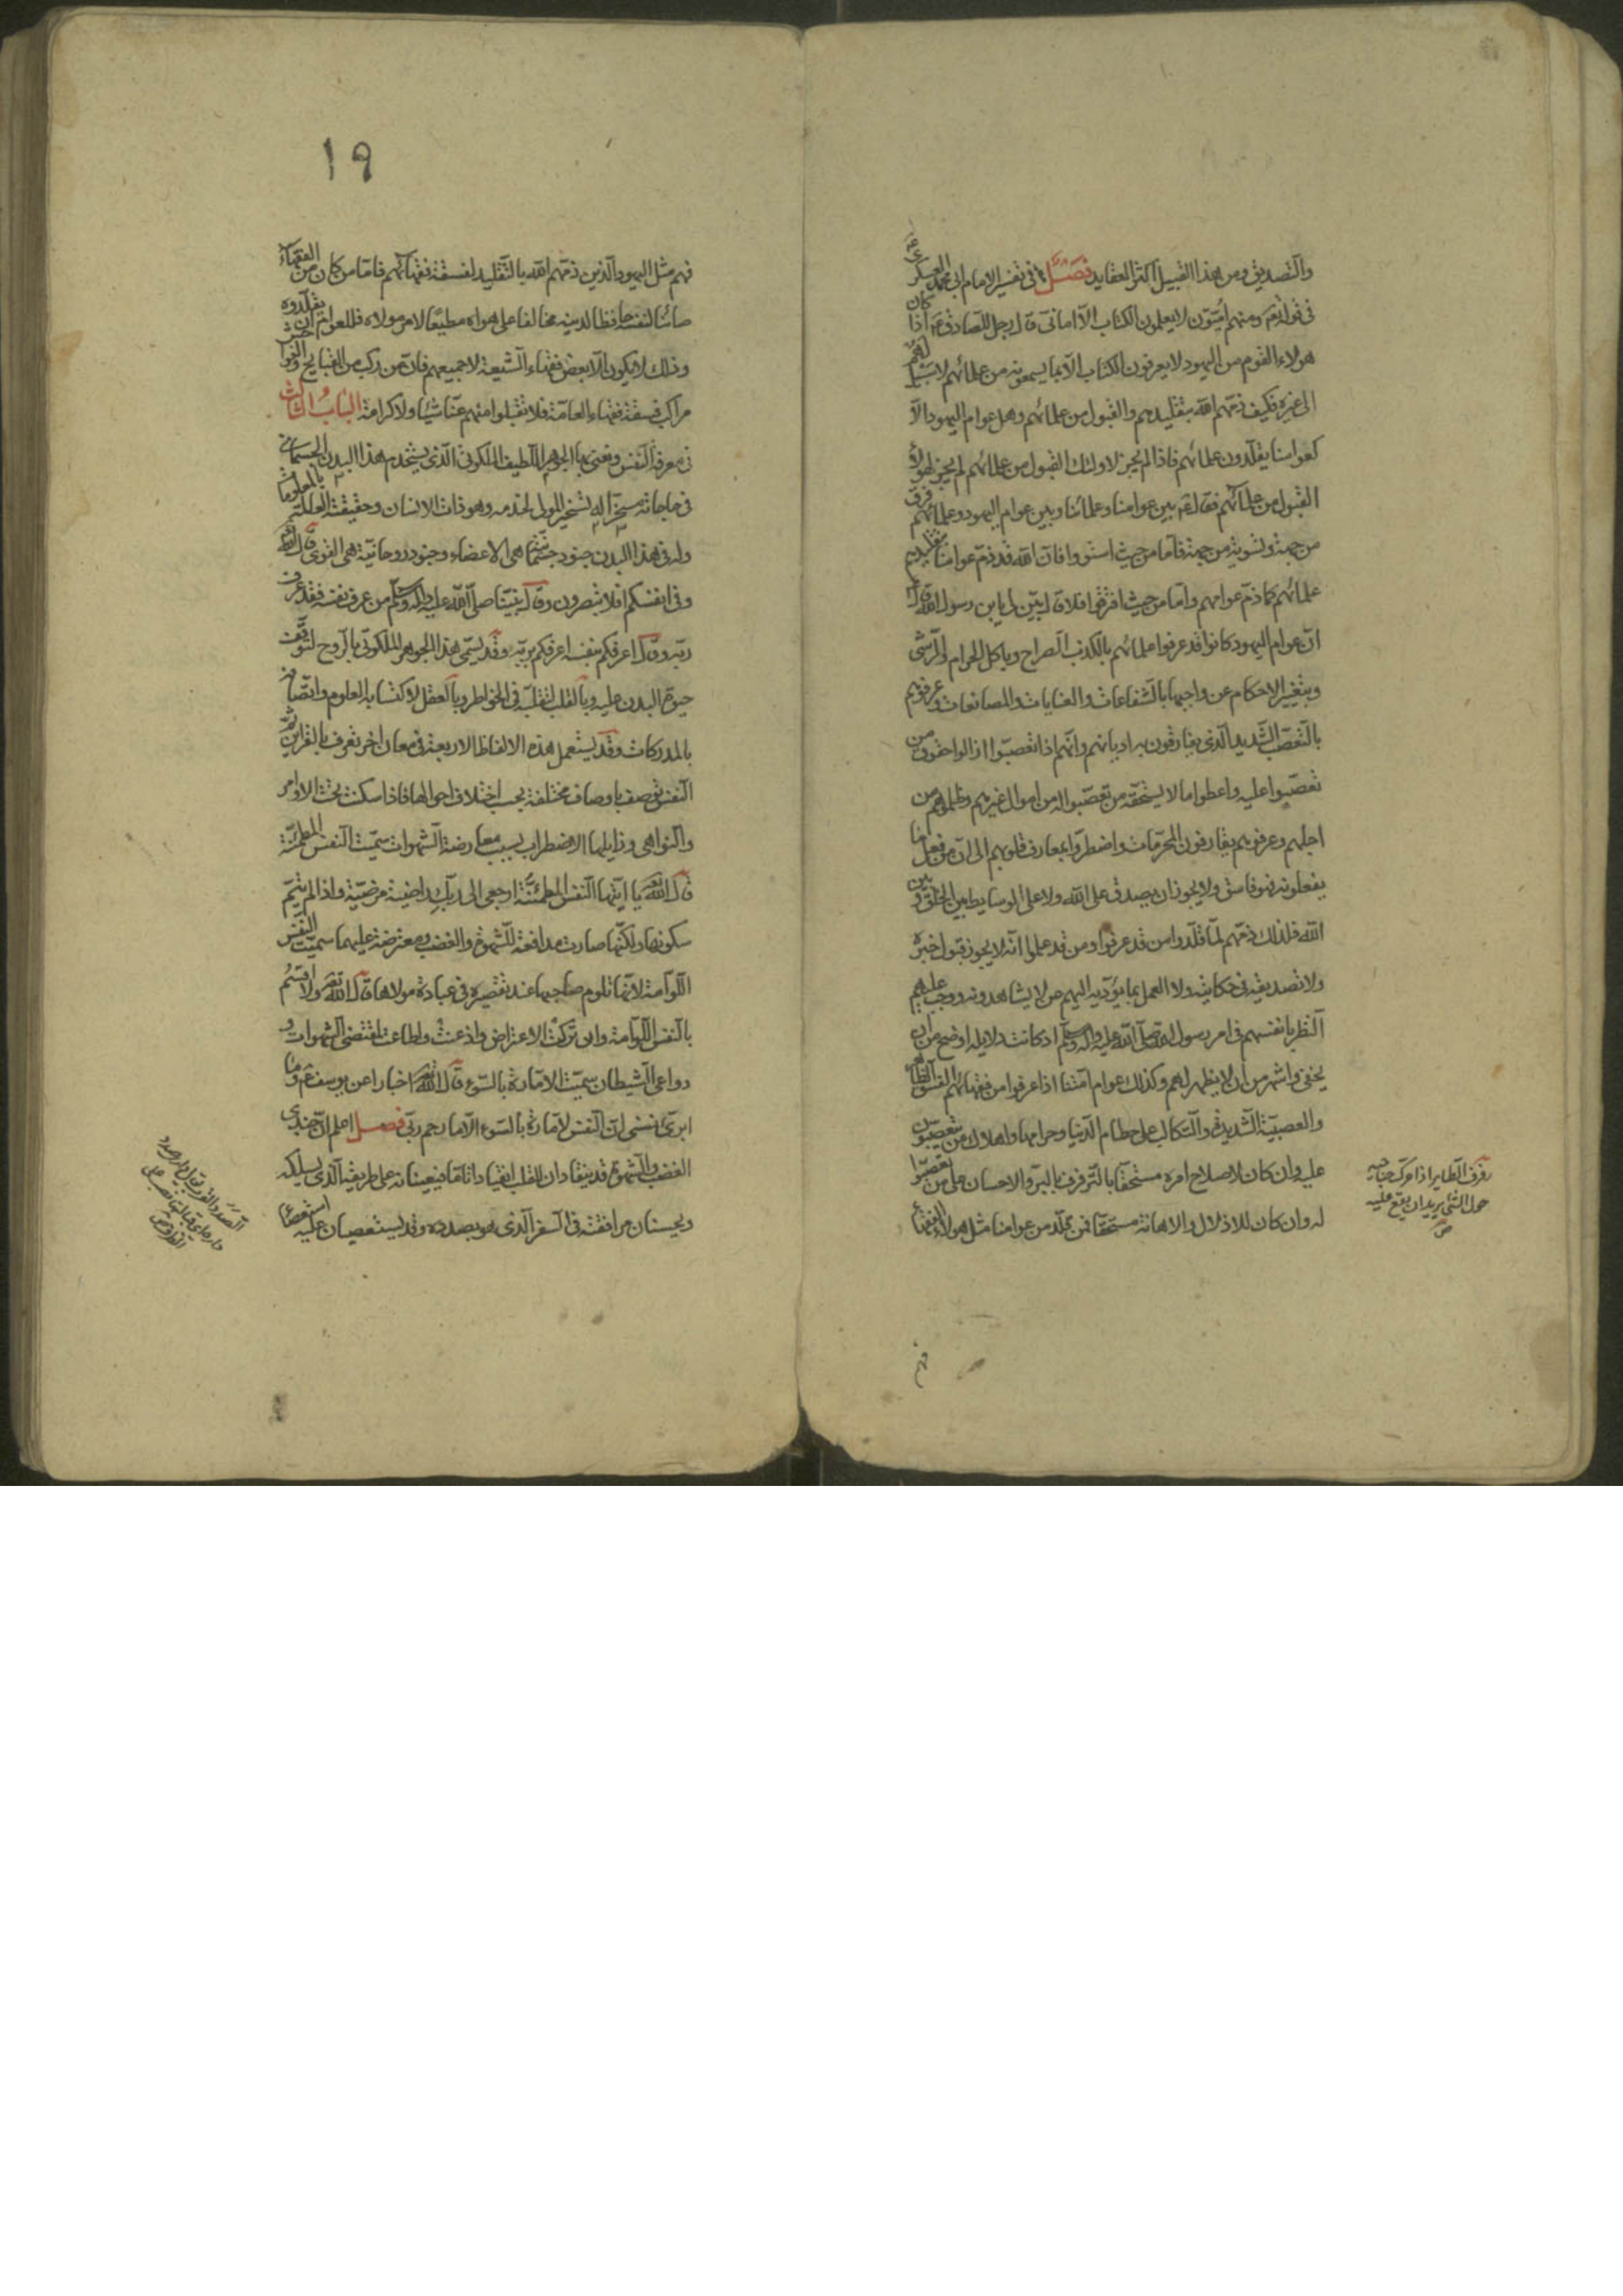 والتصديق ومن هذا القبيل اكثر العقايد فصل في تفسير الامام ابي محمد العسكري ع
في قوله تع ومنهم اميّون لا يعلمون الكتاب الّا اماني قال رجل للصادق ع اذا كان
هولاء القوم من اليهود لا يعرفون الكتاب الّا بما يسمعونه من علمائهم لا سبيل لهم
الى غيره فكيف ذمّهم الله بتقليدهم والقبول من علمائهم وهل عوام اليهود الّا
كعوامنا يقلّدون علمائهم فاذا لم يجز لاولئك القبول من علمائهم لم يجز لهولاء
القبول من علمائهم فقال ع بين عوامنا وعلمائنا وبين عوام اليهود وعلمائهم فرق
من جهة وتسوية من جهة فاما من حيث استووا فان الله قد ذمّ عوامنا بتقليدهم
علمائهم كما ذمّ عوامهم واما من حيث افترقوا فلا قال بيّن لي يابن رسول الله قال
انّ عوام اليهود كانوا قد عرفوا علمائهم بالكذب الصراح وباكل الحرام والرشى
وبتغيير الاحكام عن واجبها بالشفاعات والعنايات والمصانعات وعرفوهم
بالتعصّب الشديد الّذي يفارقون به اديانهم وانّهم اذا تعصّبوا ازالوا حقوق من
تعصّبوا عليه واعطوا ما لا يستحقّه من تعصّبوا له من اموال غيرهم وظلموهم من
اجلهم وعرفوهم يقارفون المحرّمات واضطرّوا بمعارف قلوبهم الى انّ من فعل ما
يفعلونه فهو فاسق ولا يجوز ان يصدق على الله ولا على الوسايط بين الخلق و بين
الله فلذلك ذمّهم لمّا قلّدوا من قد عرفوا ومن قد علموا انّه لا يجوز قبول خبره
ولا تصديقه في حكايته ولا العمل بما يؤدّيه اليهم عن لا يشاهدونه ووجب عليهم
النظر بانفسهم في امر رسول الله صلّى الله عليه وآله وسلّم اذ كانت دلايله اوضح من ان
يخفى واشهر من ان لا يظهر لهم وكذلك عوام امّتنا اذا عرفوا من فقهائهم الفسق الظاهر
والعصبيّة الشديدة والتكالب على حطام الدنيا وحرامها واهلاك من يتعصّبون
عليه وان كان لاصلاح امره مستحقّا بالترفرف بالبرّ والاحسان على من تعصّبوا
له وان كان للاذلال والاهانة مستحقّا فمن قلّد من عوامنا مثل هولاء الفقهاء
رفرف الطاير اذا حرّك جناحيه
حول الشئ يريدان يقع عليه
ص
فهم
١٩
فهم مثل اليهود الّذين ذمّهم الله بالتقليد لفسقة فقهائهم فامّا من كان من الفقهاء
صائنا لنفسه حافظا لدينه مخالفا على هواه مطيعًا لامر مولاه فللعوام ان يقلّدوه
وذلك لا يكون الّا بعض فقهاء الشيعة لا جميعهم فانّ من ركب من القبايح والفواحش
مراكب فسقة فقهاء العامّة فلا تقبلوا منهم عنّا شيئا ولا كرامة الباب الثالث
في معرفة النفس ونعني بها الجوهر اللطيف الملكوتي الّذي يستخدم هذا البدن الجسماني
في حاجاته مسخّرا له تسخير المولى لخدمه وهو ذات الانسان وحقيقته العالمة بالمعلومات
وله في هذا البدن جنود جسمانية هي الاعضاء وجنود روحانيّة هي القوى قال الله تع
وفي انفسكم افلا تبصرون وقال نبيّنا صلّى الله عليه وآله وسلّم من عرف نفسه فقد عرف
ربّه وقال اعرفكم بنفسه اعرفكم بربّه وقد يسمّى هذا الجوهر الملكوتي بالروح لتوقّف
حيوة البدن عليه وبالقلب لتقلّبه في الخواطر وبالعقل لاكتسابه العلوم واتّصافه
بالمدركات وقد يستعمل هذه الالفاظ الاربعة في معان اخر تعرف بالقراين ثمّ
النفس توصف باوصاف مختلفة بحسب اختلاف احوالها فاذا سكنت تحت الاوامر
والنواهي وزايلها الاضطراب بسبب معارضة الشهوات سمّيت النفس المطمئنّة
قال الله تع يا ايّتها النفس المطمئنّة ارجعي الى ربّك راضية مرضيّة واذا لم يتمّ
سكونها ولكنّها صارت مدافعة للشهوة والغضب ومعترضة عليهما سمّيت النفس
اللوّامة لانّها تلوم صاحبها عند تقصيره في عبادة مولاها قال الله تع ولا اقسم
بالنفس اللوّامة وان تركت الاعتراض واذعنت واطاعت لمقتضى الشهوات و
دواعي الشيطان سمّيت الامّارة بالسوء قال الله تع اخبارا عن يوسف ع وما
ابرئ نفسي انّ النفس لامّارة بالسوء الّا ما رحم ربّي فصل اعلم انّ جندي
الغضب والشهوة قد ينقادان للقلب انقيادا تامّا فيعينانه على طريقه الّذي يسلكه
ويحسنان مرافقته في السفر الّذي هو بصدده وقد يستعصيان عليه استعصاء